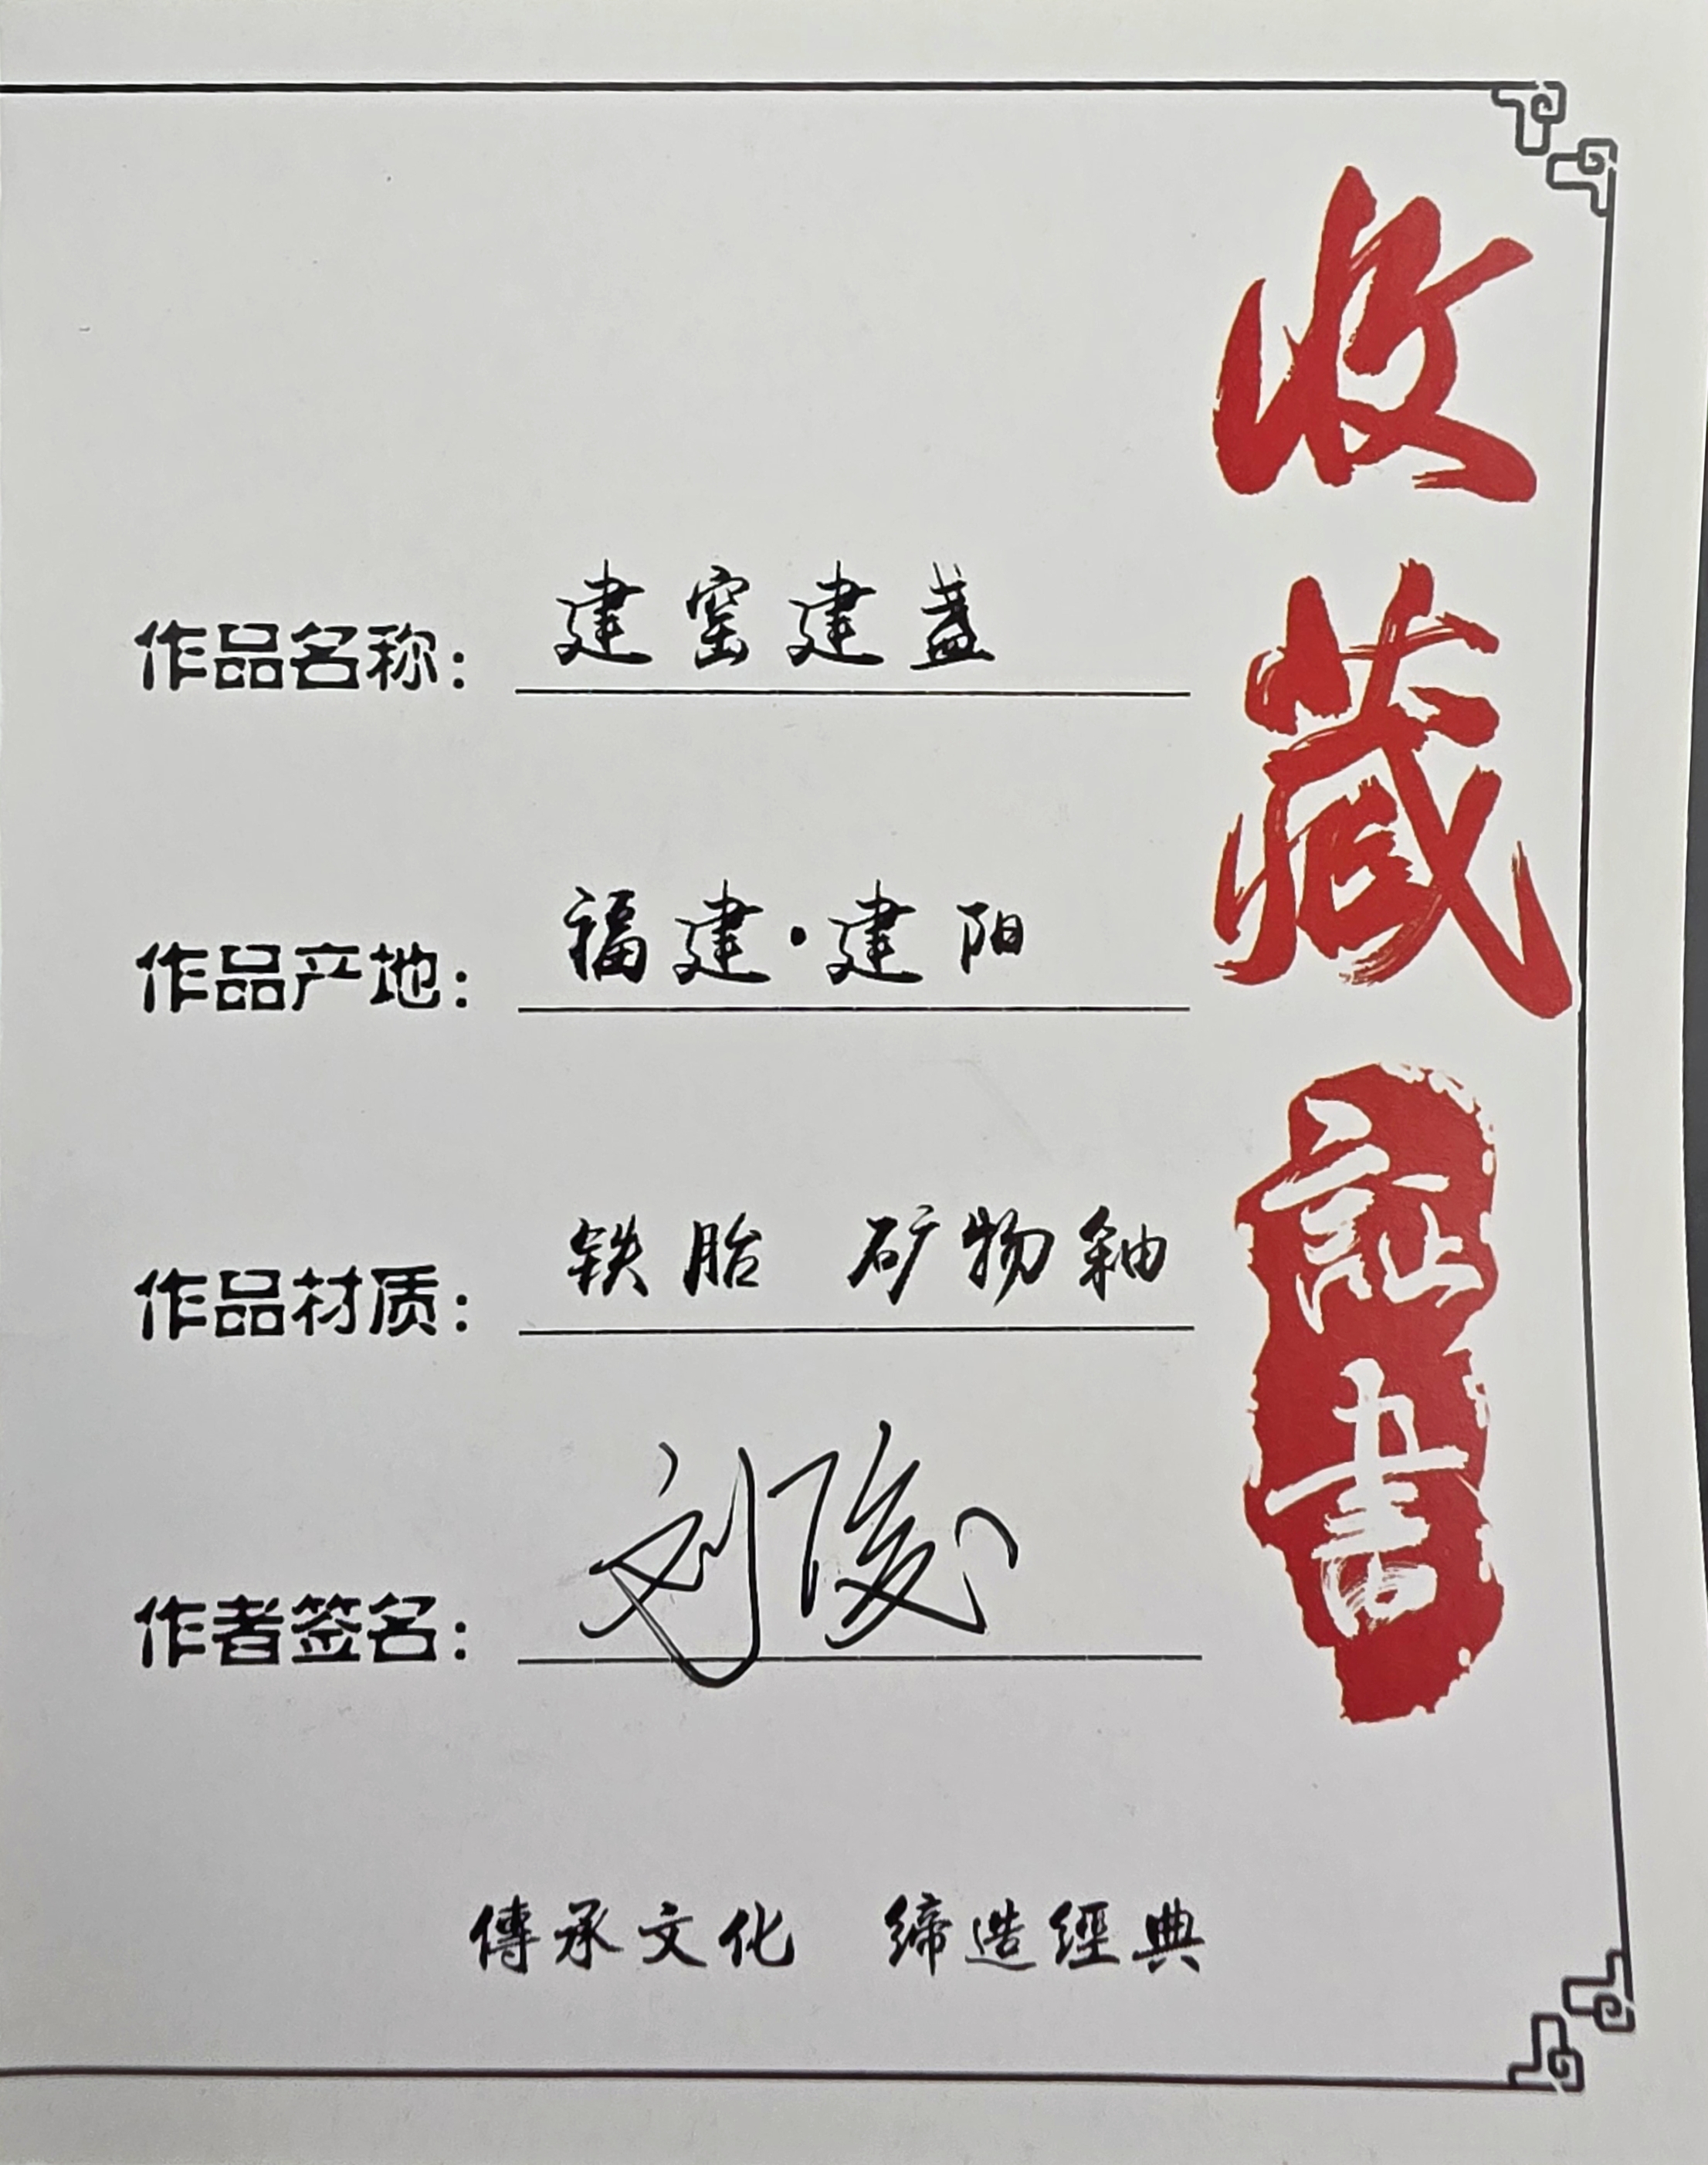 收藏証书
作品名称：建窑建盏
作品产地：福建·建阳
作品材质：铁胎 矿物釉
作者签名：刘俊
傳承文化 締造經典